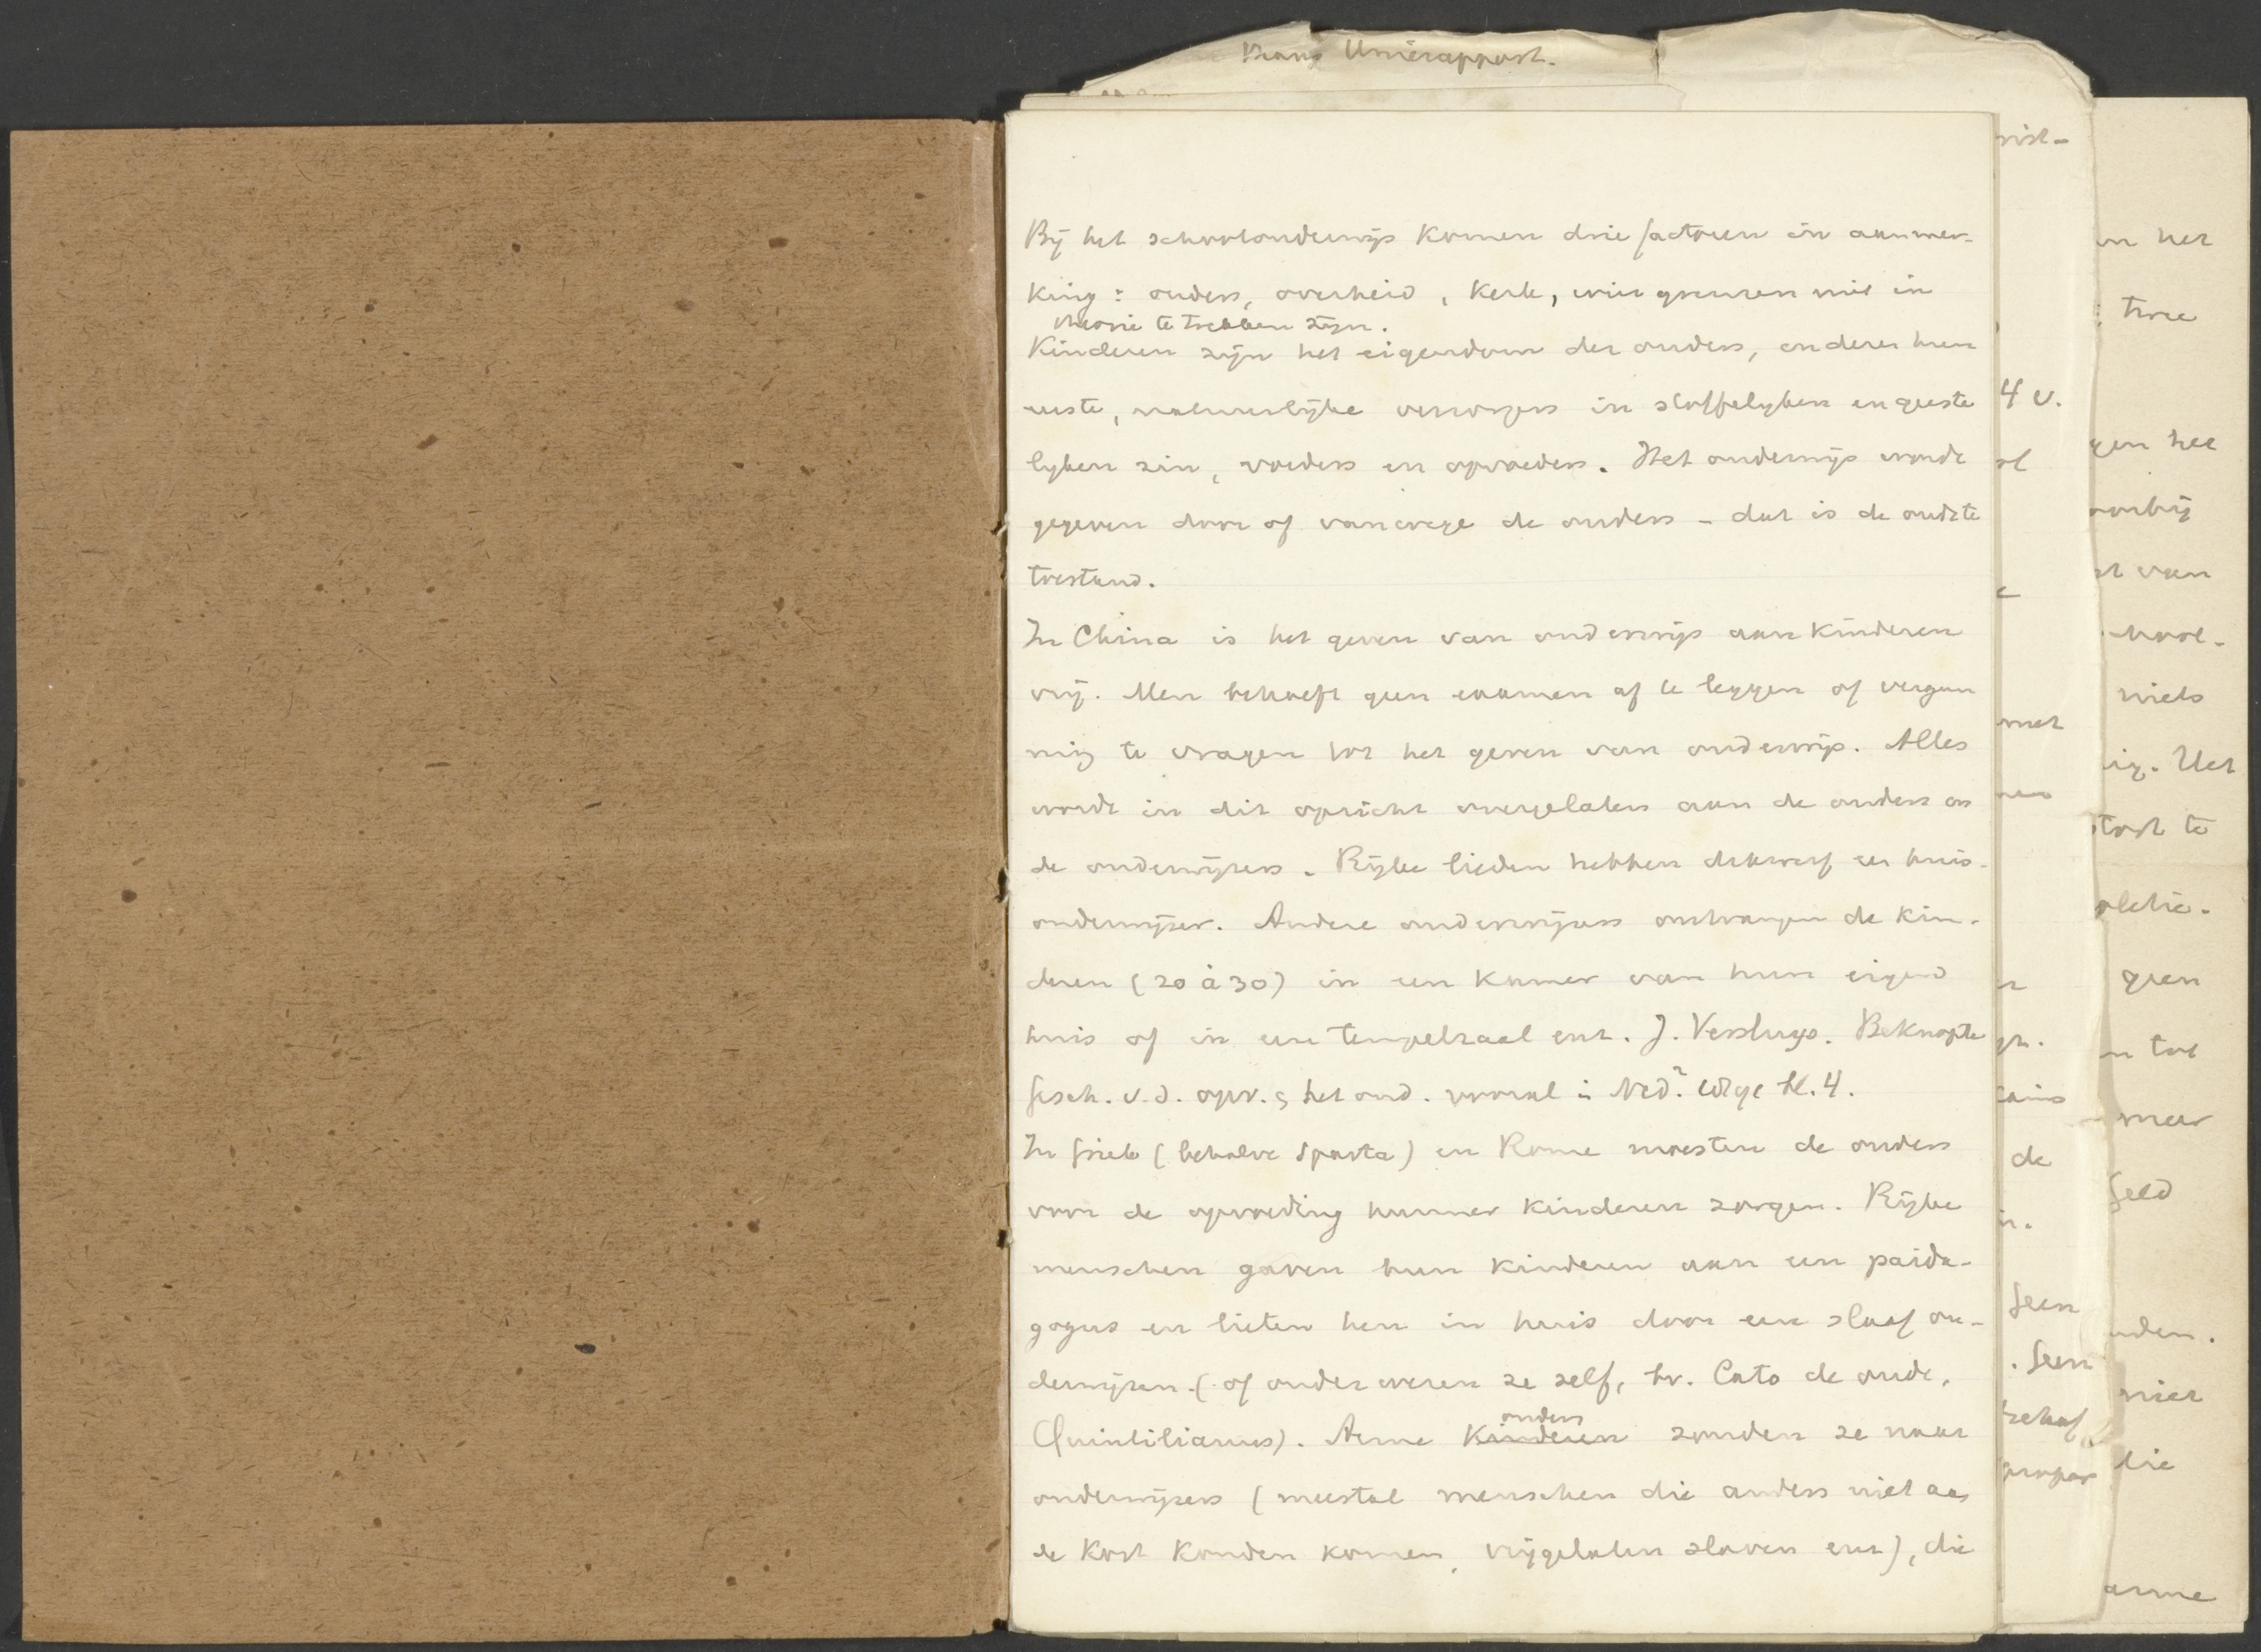 Unierapport.
Bij het schoolonderwijs komen drie factoren in aanmer-
king: ouders, overheid, kerk, wier grenzen niet in
theorie te trekken zijn.
Kinderen zijn het eigendom der ouders, en deze hun
eerste, natuurlijke verzorgers in stoffelyken en geeste
lyken zin, voeders en opvoeders. Het onderwijs wordt
gegeven door of vanwege de ouders - dat is de oudste
toestand.
In China is het geven van onderwijs aan kinderen
vrij. Men behoeft geen examen af te leggen of vergun
ning te vragen tot het geven van onderwijs. Alles
wordt in dit opzicht overgelaten aan de ouders en
de onderwijzers. Rijke lieden hebben dikwerf een huis-
onderwijzer. Andere onderwijzers ontvangen de kin-
deren (20 à 30) in een kamer van hun eigen
huis of in een tempelzaal enz. J. Versluys. Beknopte
Gesch. v.d. opv. & het ond. vooral in Ned. bl. 4.
In Griek (behalve Sparta) en Rome moesten de ouders
voor de opvoeding hunner kinderen zorgen. Rijke
menschen gaven hun kinderen aan een paida-
gogus en lieten hen in huis door een slaaf on-
derwijzen (of onderwezen ze zelf, bv. Cato de oude,
Quintilianus). Arme kinderen ouders zonden ze naar
onderwijzers (meestal menschen die anders niet aan
de kost konden komen, vrijgelaten slaven enz), die
4 v.
met
de
Geen
. Geen
behoef
het
twee
gen het
voorbij
van
niets
ig. Het
geen
n tot
meer
Geld
nden.
niet
die
arme